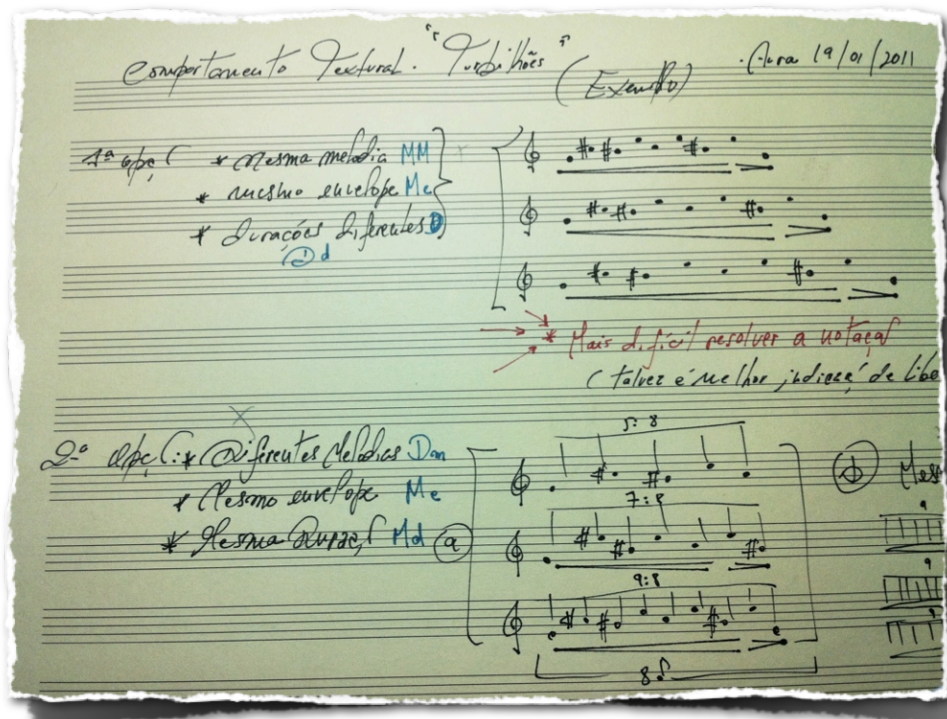 Comportamento Textural. "Turbilhões"
(Exemplo)
19/01/2011
1ª opç
* Mesma melodia MM
* mesmo envelope Me
* Durações diferentes D
d
* Mais difícil resolver a notaç
(talvez é melhor de libe
5:8
2ª opç: * Diferentes Melodias Dm
* Mesmo envelope Me
* Mesma Duraç Md
a
7:8
9:8
8
b Mes
9
9